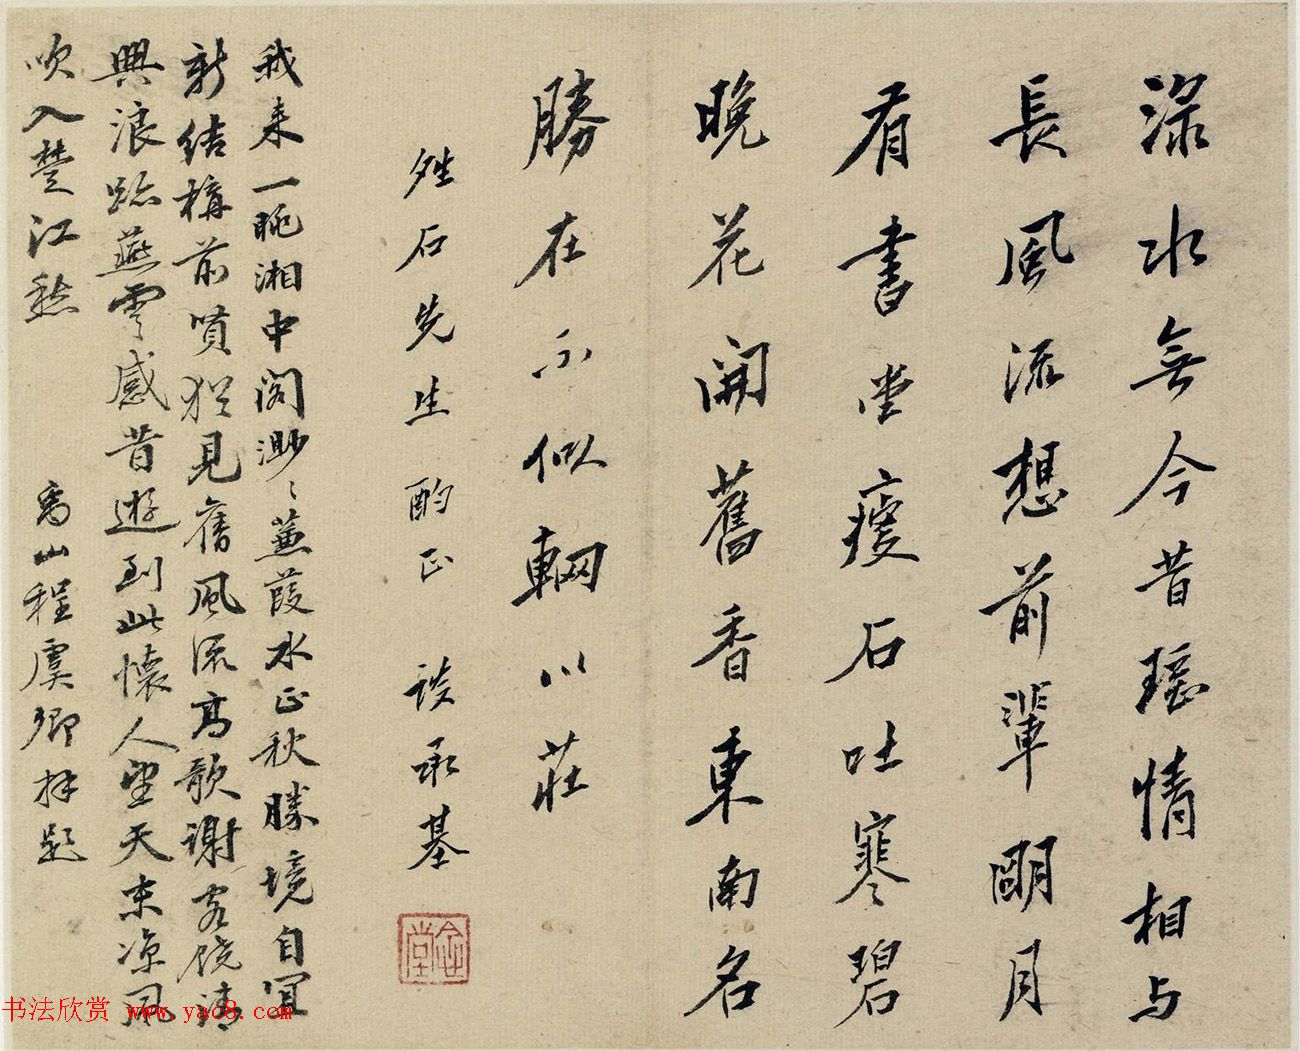 渌水無今昔瑶情相与
長風流想前輩明月
有書堂瘦石吐寒碧
晚花開舊香東南名
勝在不似輞川莊
姓石先生酌正 談承基
念堂
我来一眺湘中阁渺〻蒹葭水正秋勝境自宜
新结構前賢猶見舊風流高歌谢客饶清
興浪跡燕雲感昔遊到此懷人望天末凉風
吹入楚江愁
禹山程虞卿拜題
书法欣赏 www.yac8.com